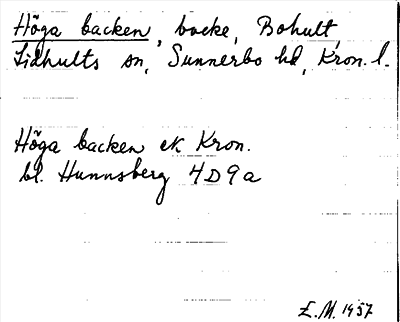 Höga backen, backe, Bohult,
Lidhults sn, Sunnerbo hd, Kron. l.
Höga backen ek Kron.
bl. Hunnsberg 4D9a
E.M. 1957